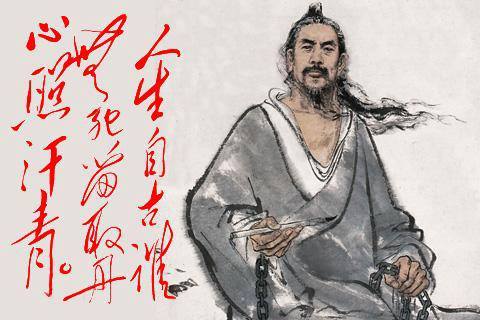 人生自古谁
无死留取丹
心照汗青。